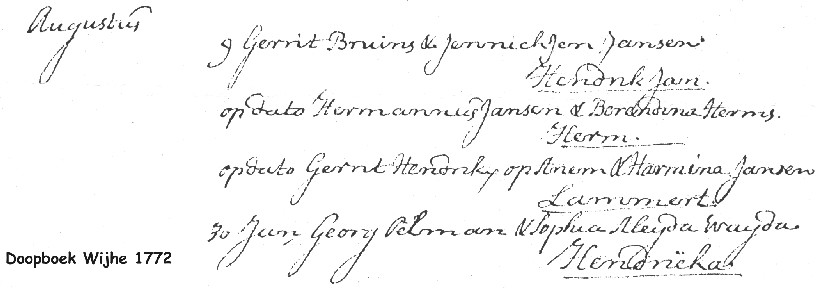 Augustus
9 Gerrit Bruins & Jennichjen Jansen
Hendrik Jan.
op dato Hermannus Jansen & Berendina Herms.
Herm.
op dato Gerrit Hendriks op & Harmina Jansen
Lammert.
30 Jan Georg Pelman & Sophia Aleyda
Hendriëka.
Doopboek Wijhe 1772